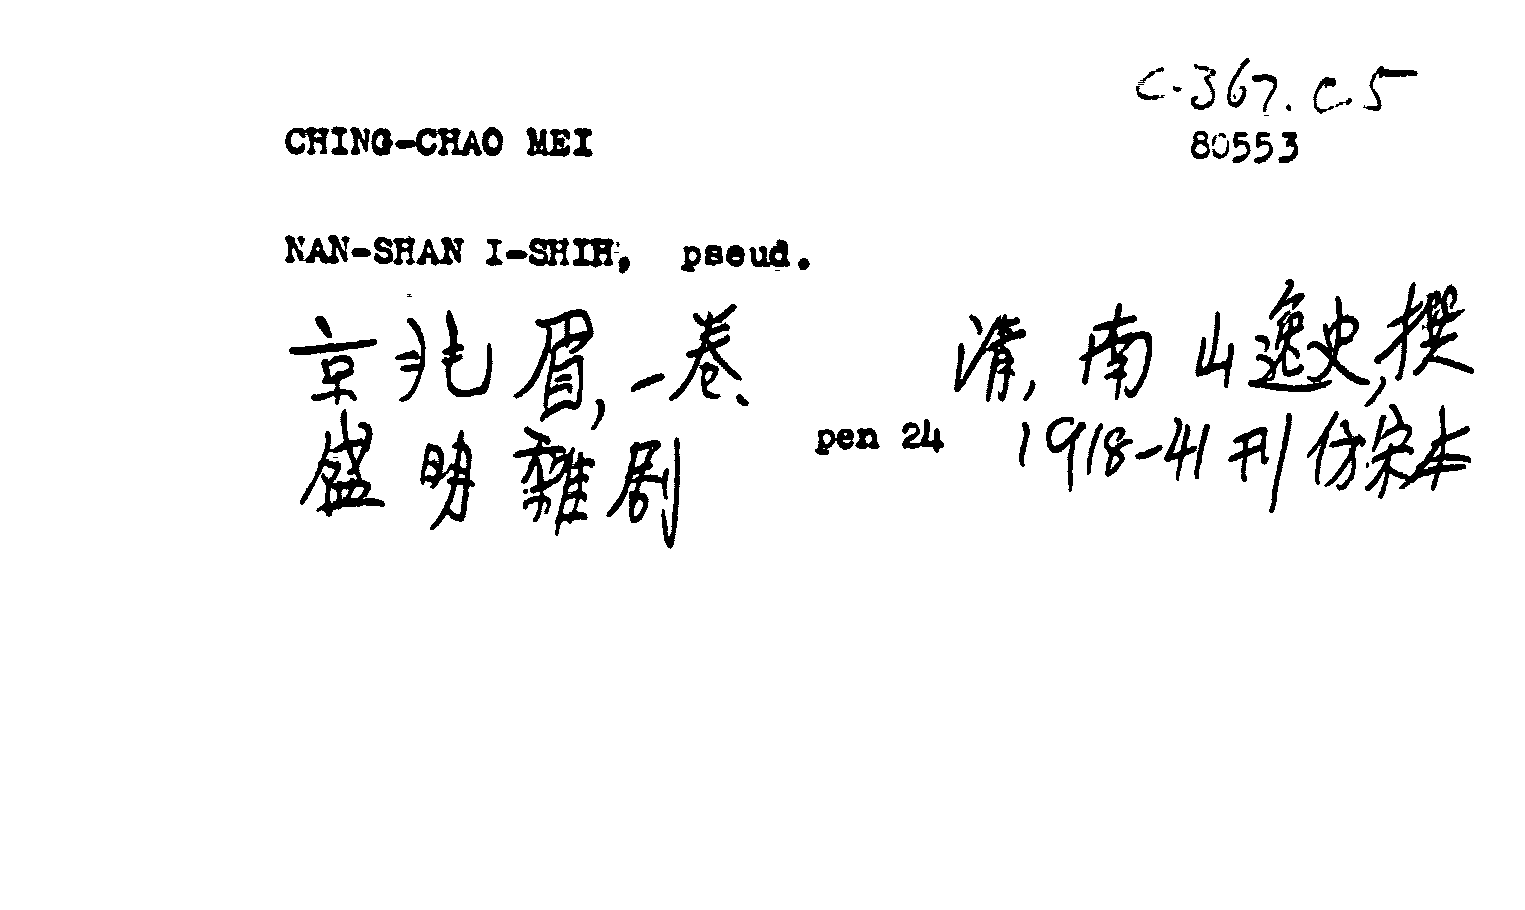 C.367.c.5
CHING-CHAO MEI
80553
NAN-SHAN I-SHIH, pseud.
京兆眉,一卷、 清,南山逸史,撰
盛明雜剧 pen 24 1918-41刊仿宋本